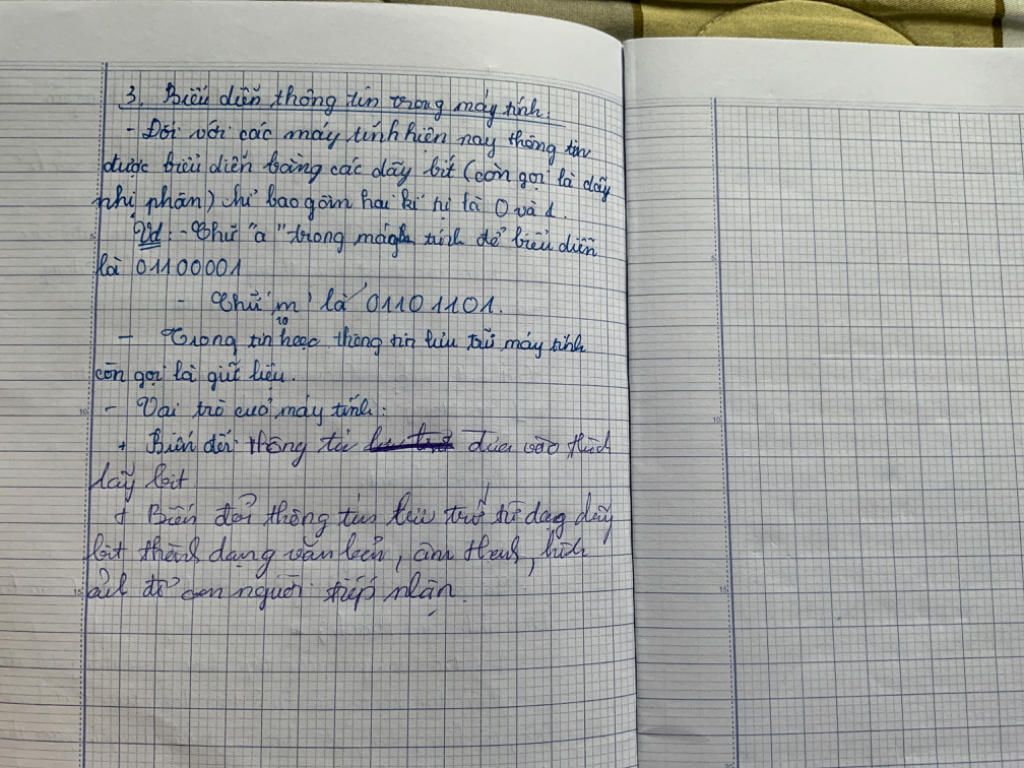 3. Biểu diễn thông tin trong máy tính:
- Đối với các máy tính hiện nay thông tin
được biểu diễn bằng các dãy bit (còn gọi là dãy
nhị phân) chỉ bao gồm hai kí tự là 0 và 1.
Vd: - Chữ "a" trong máy tính để biểu diễn
là 01100001
- Chữ "m" là 01101101.
- Trong tin học thông tin lưu trữ máy tính
còn gọi là giữ liệu.
- Vai trò của máy tính:
+ Biến đổi thông tin đưa vào thành
dãy bit
+ Biến đổi thông tin lưu trữ từ dạng dãy
bit thành dạng văn bản, âm thanh, hình
ảnh để con người tiếp nhận.